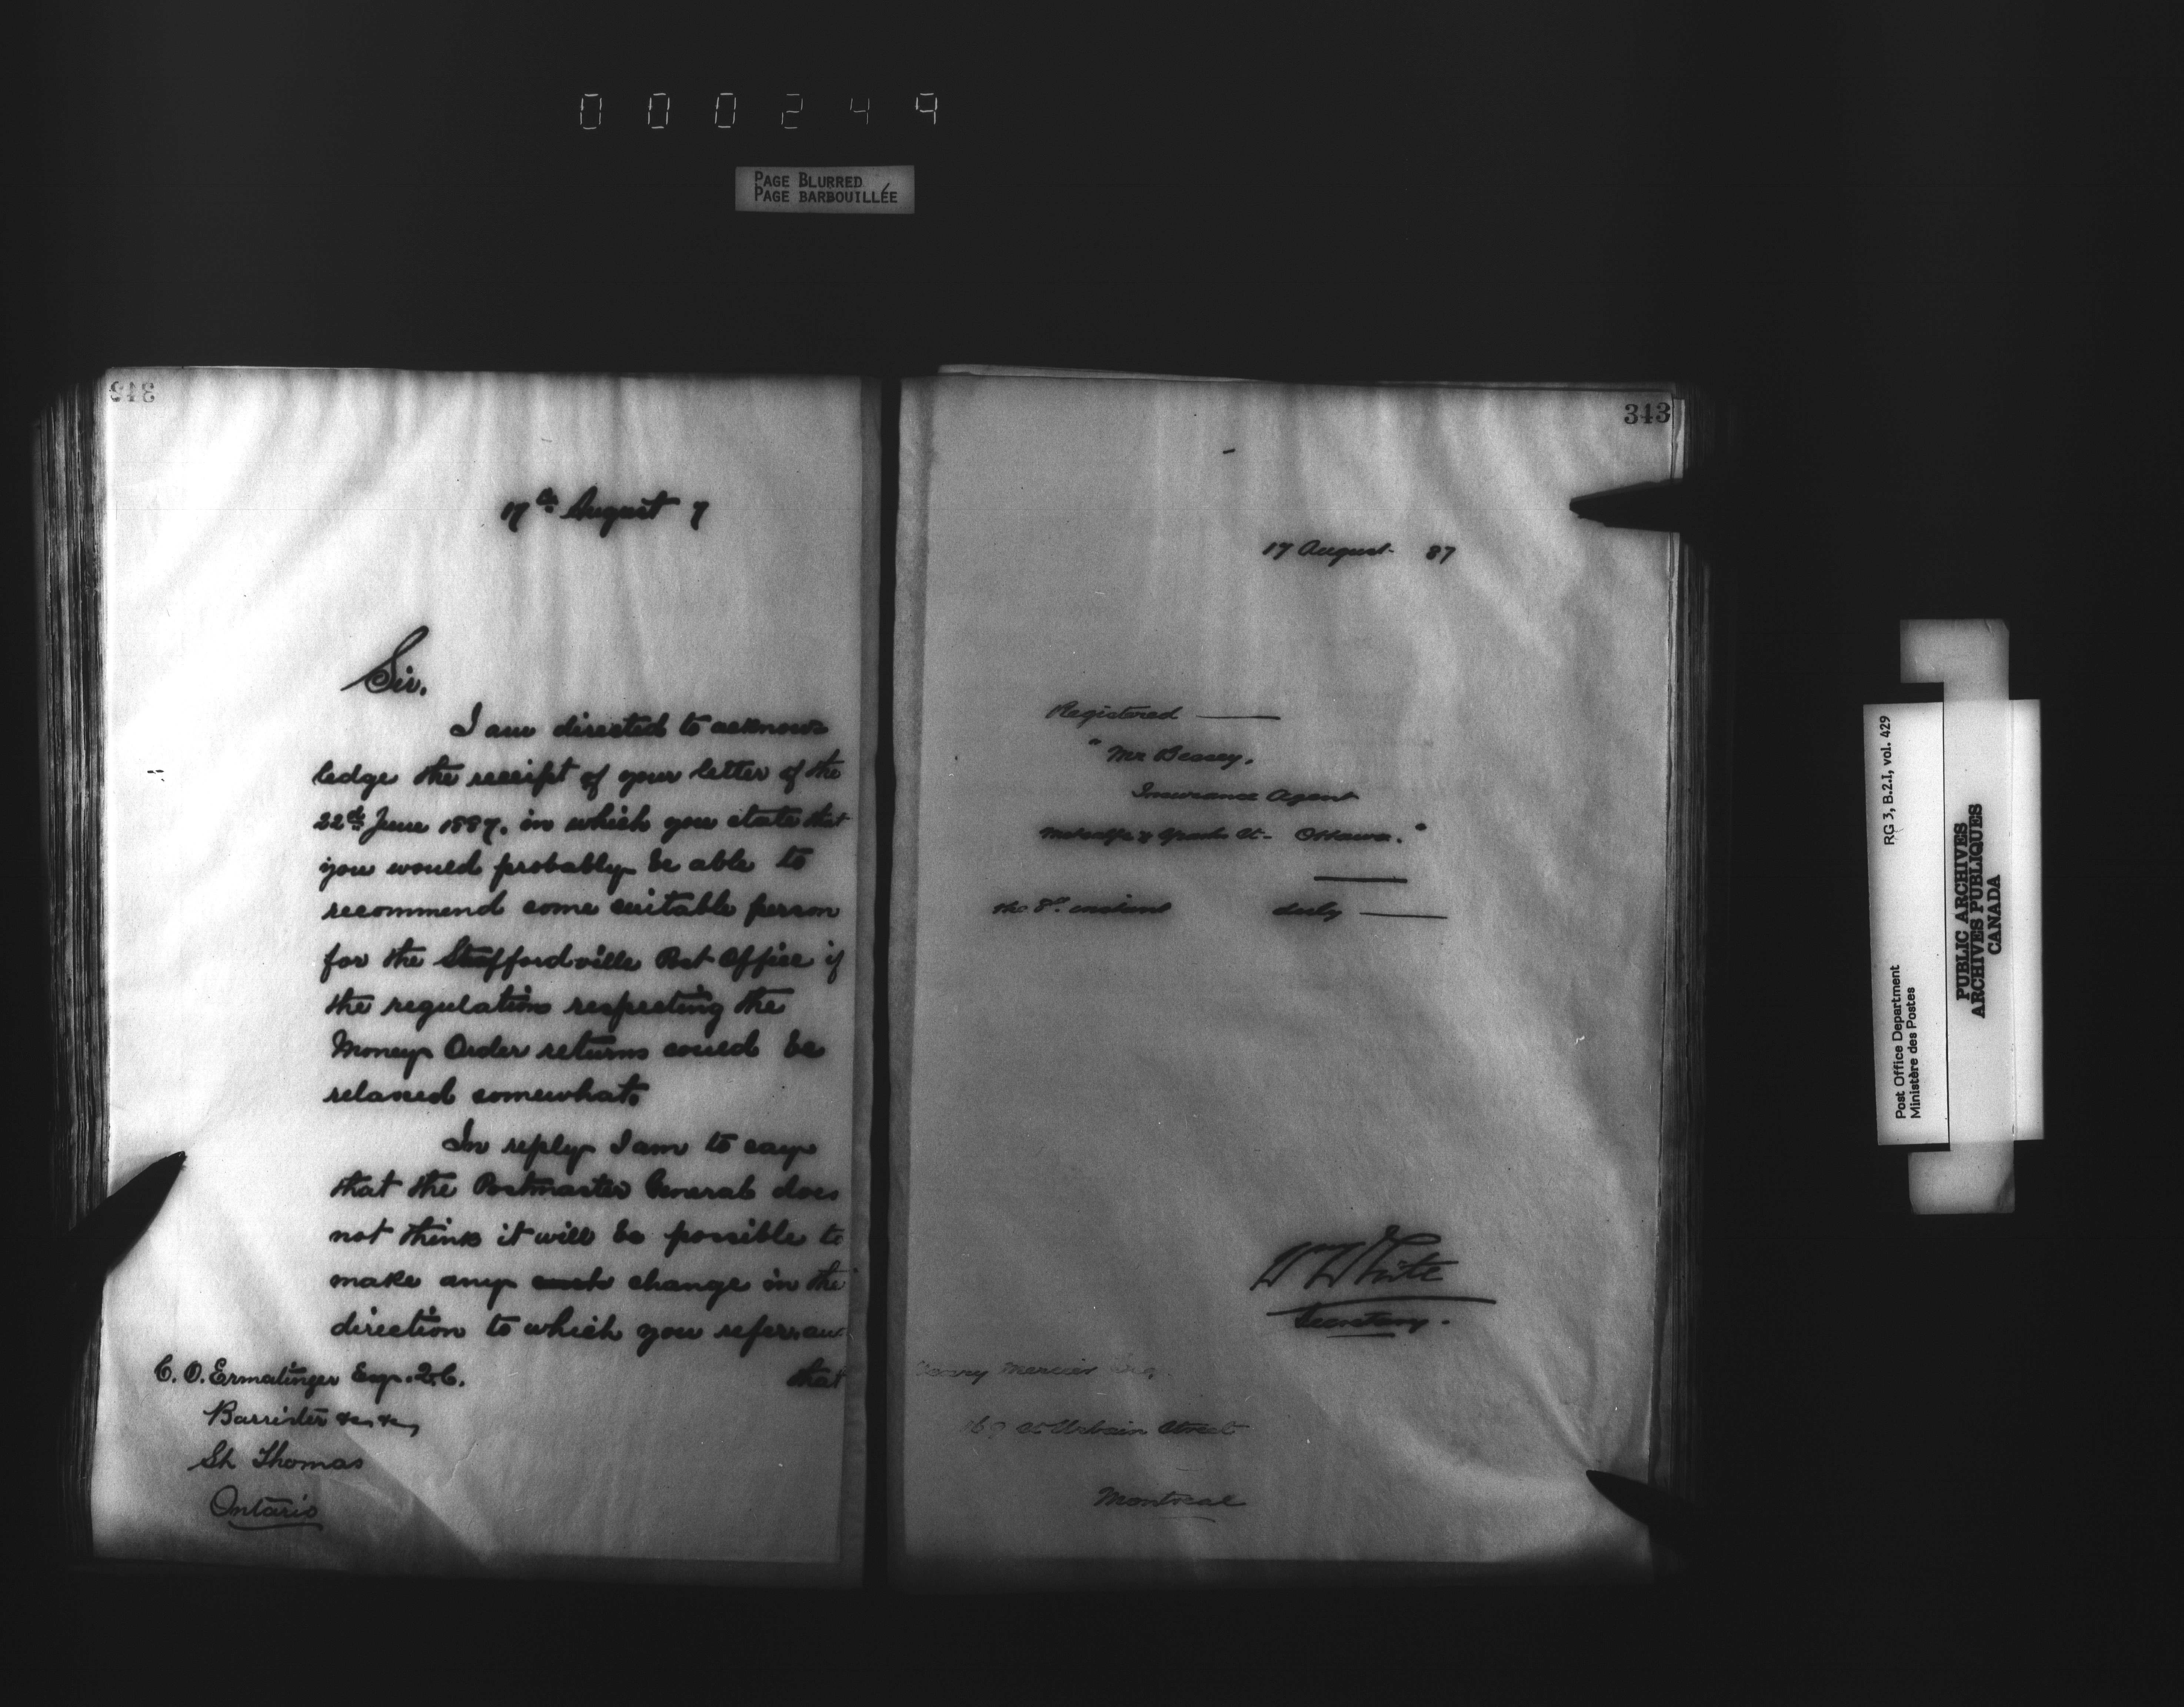 000249
PAGE BLURRED
PAGE BARBOUILLÉE
343
17th August 7
Sir.
I am directed to acknow-
ledge the receipt of your letter of the
22nd June 1887. in which you state that
you would probably be able to
recommend some suitable person
for the Straffordville Post Office if
the regulation respecting the
Money Order returns could be
relaxed somewhat.
In reply I am to say
that the Postmaster General does
not think it will be possible to
make any such change in the
direction to which you refer, and
that
C. O. Ermatinger Esqr. Q.C.
Barrister &c, &c,
St. Thomas
Ontario
343
17 August 87
Registered
" Mr
Insurance Agent
Metcalfe & Sparks St- Ottawa. "
the 8th instant duly
Wm White
Secretary.
Mercier Esq.
St Urbain Street
Montreal
Post Office Department
Ministère des Postes
RG 3, B.2.I, vol. 429
PUBLIC ARCHIVES
ARCHIVES PUBLIQUES
CANADA